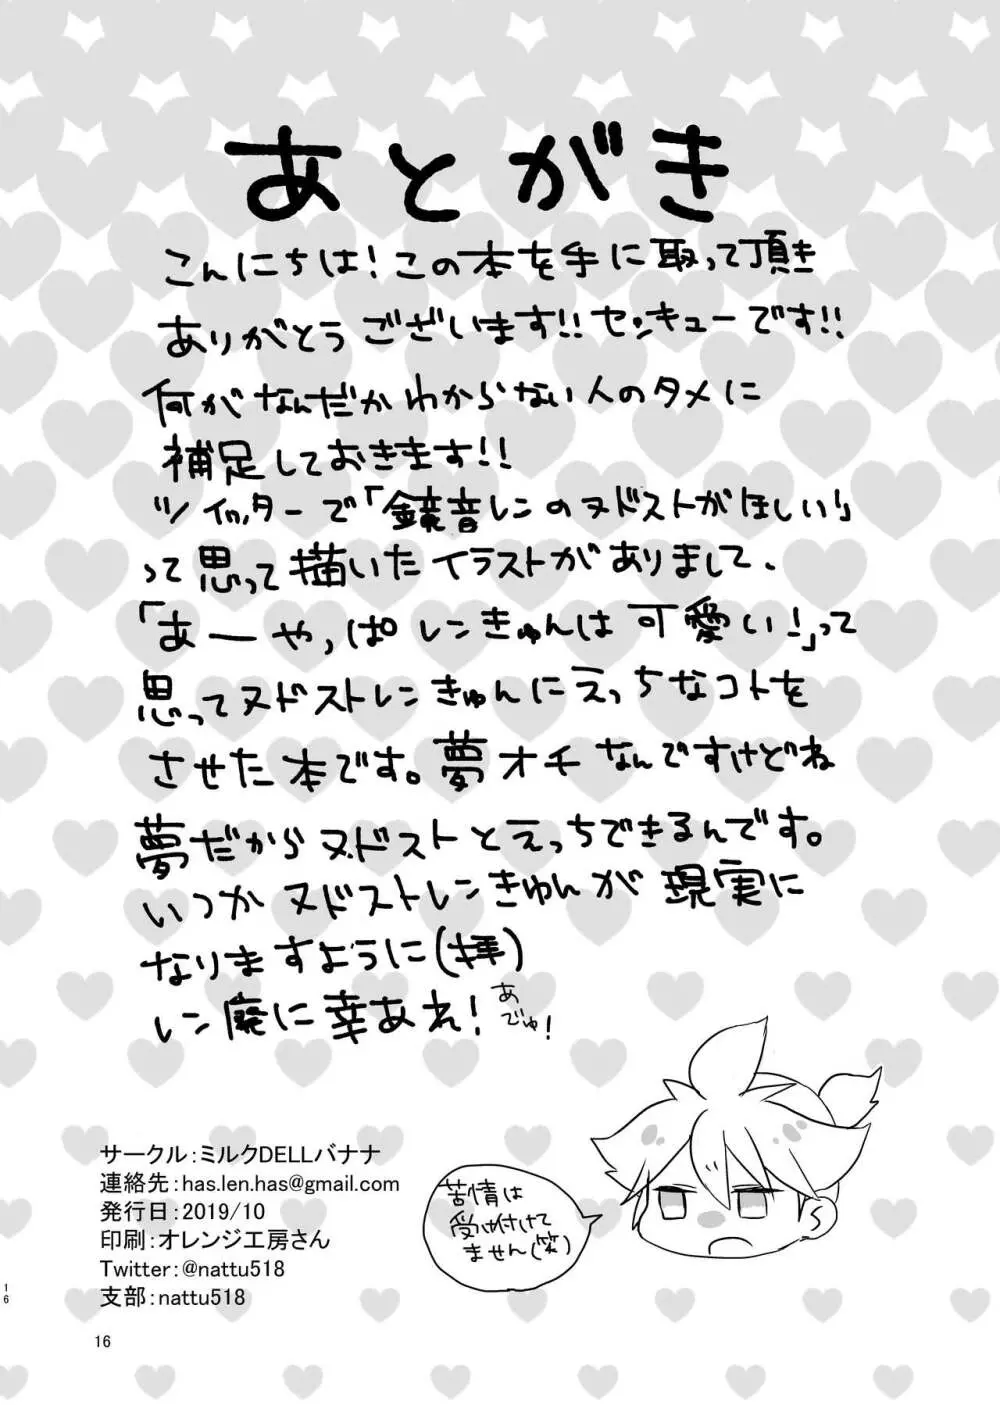 あとがき
こんにちは!この本を手に取って頂き
ありがとうございます!!センキューです!!
何がなんだかわからない人のタメに
補足しておきます!!
ツイッターで「鏡音レンのヌドストがほしい!」
って思って描いたイラストがありまして、
「あーやっぱレンきゅんは可愛い!」って
思ってヌドストレンきゅんにえっちなコトを
させた本です。夢オチなんですけどね
夢だからヌドストとえっちできるんです。
いつかヌドストレンきゅんが現実に
なりますように(拝)
レン廃に幸あれ!
あでゅ!
サークル:ミルクDELLバナナ
連絡先:has.len.has@gmail.com
発行日:2019/10
印刷:オレンジ工房さん
Twitter:@nattu518
支部:nattu518
苦情は
受け付けて
ません(笑)
16
16